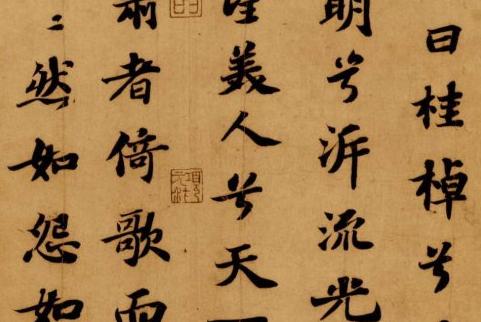 曰桂棹兮
明兮泝流光
望美人兮天一
者倚歌而
〻然如怨如